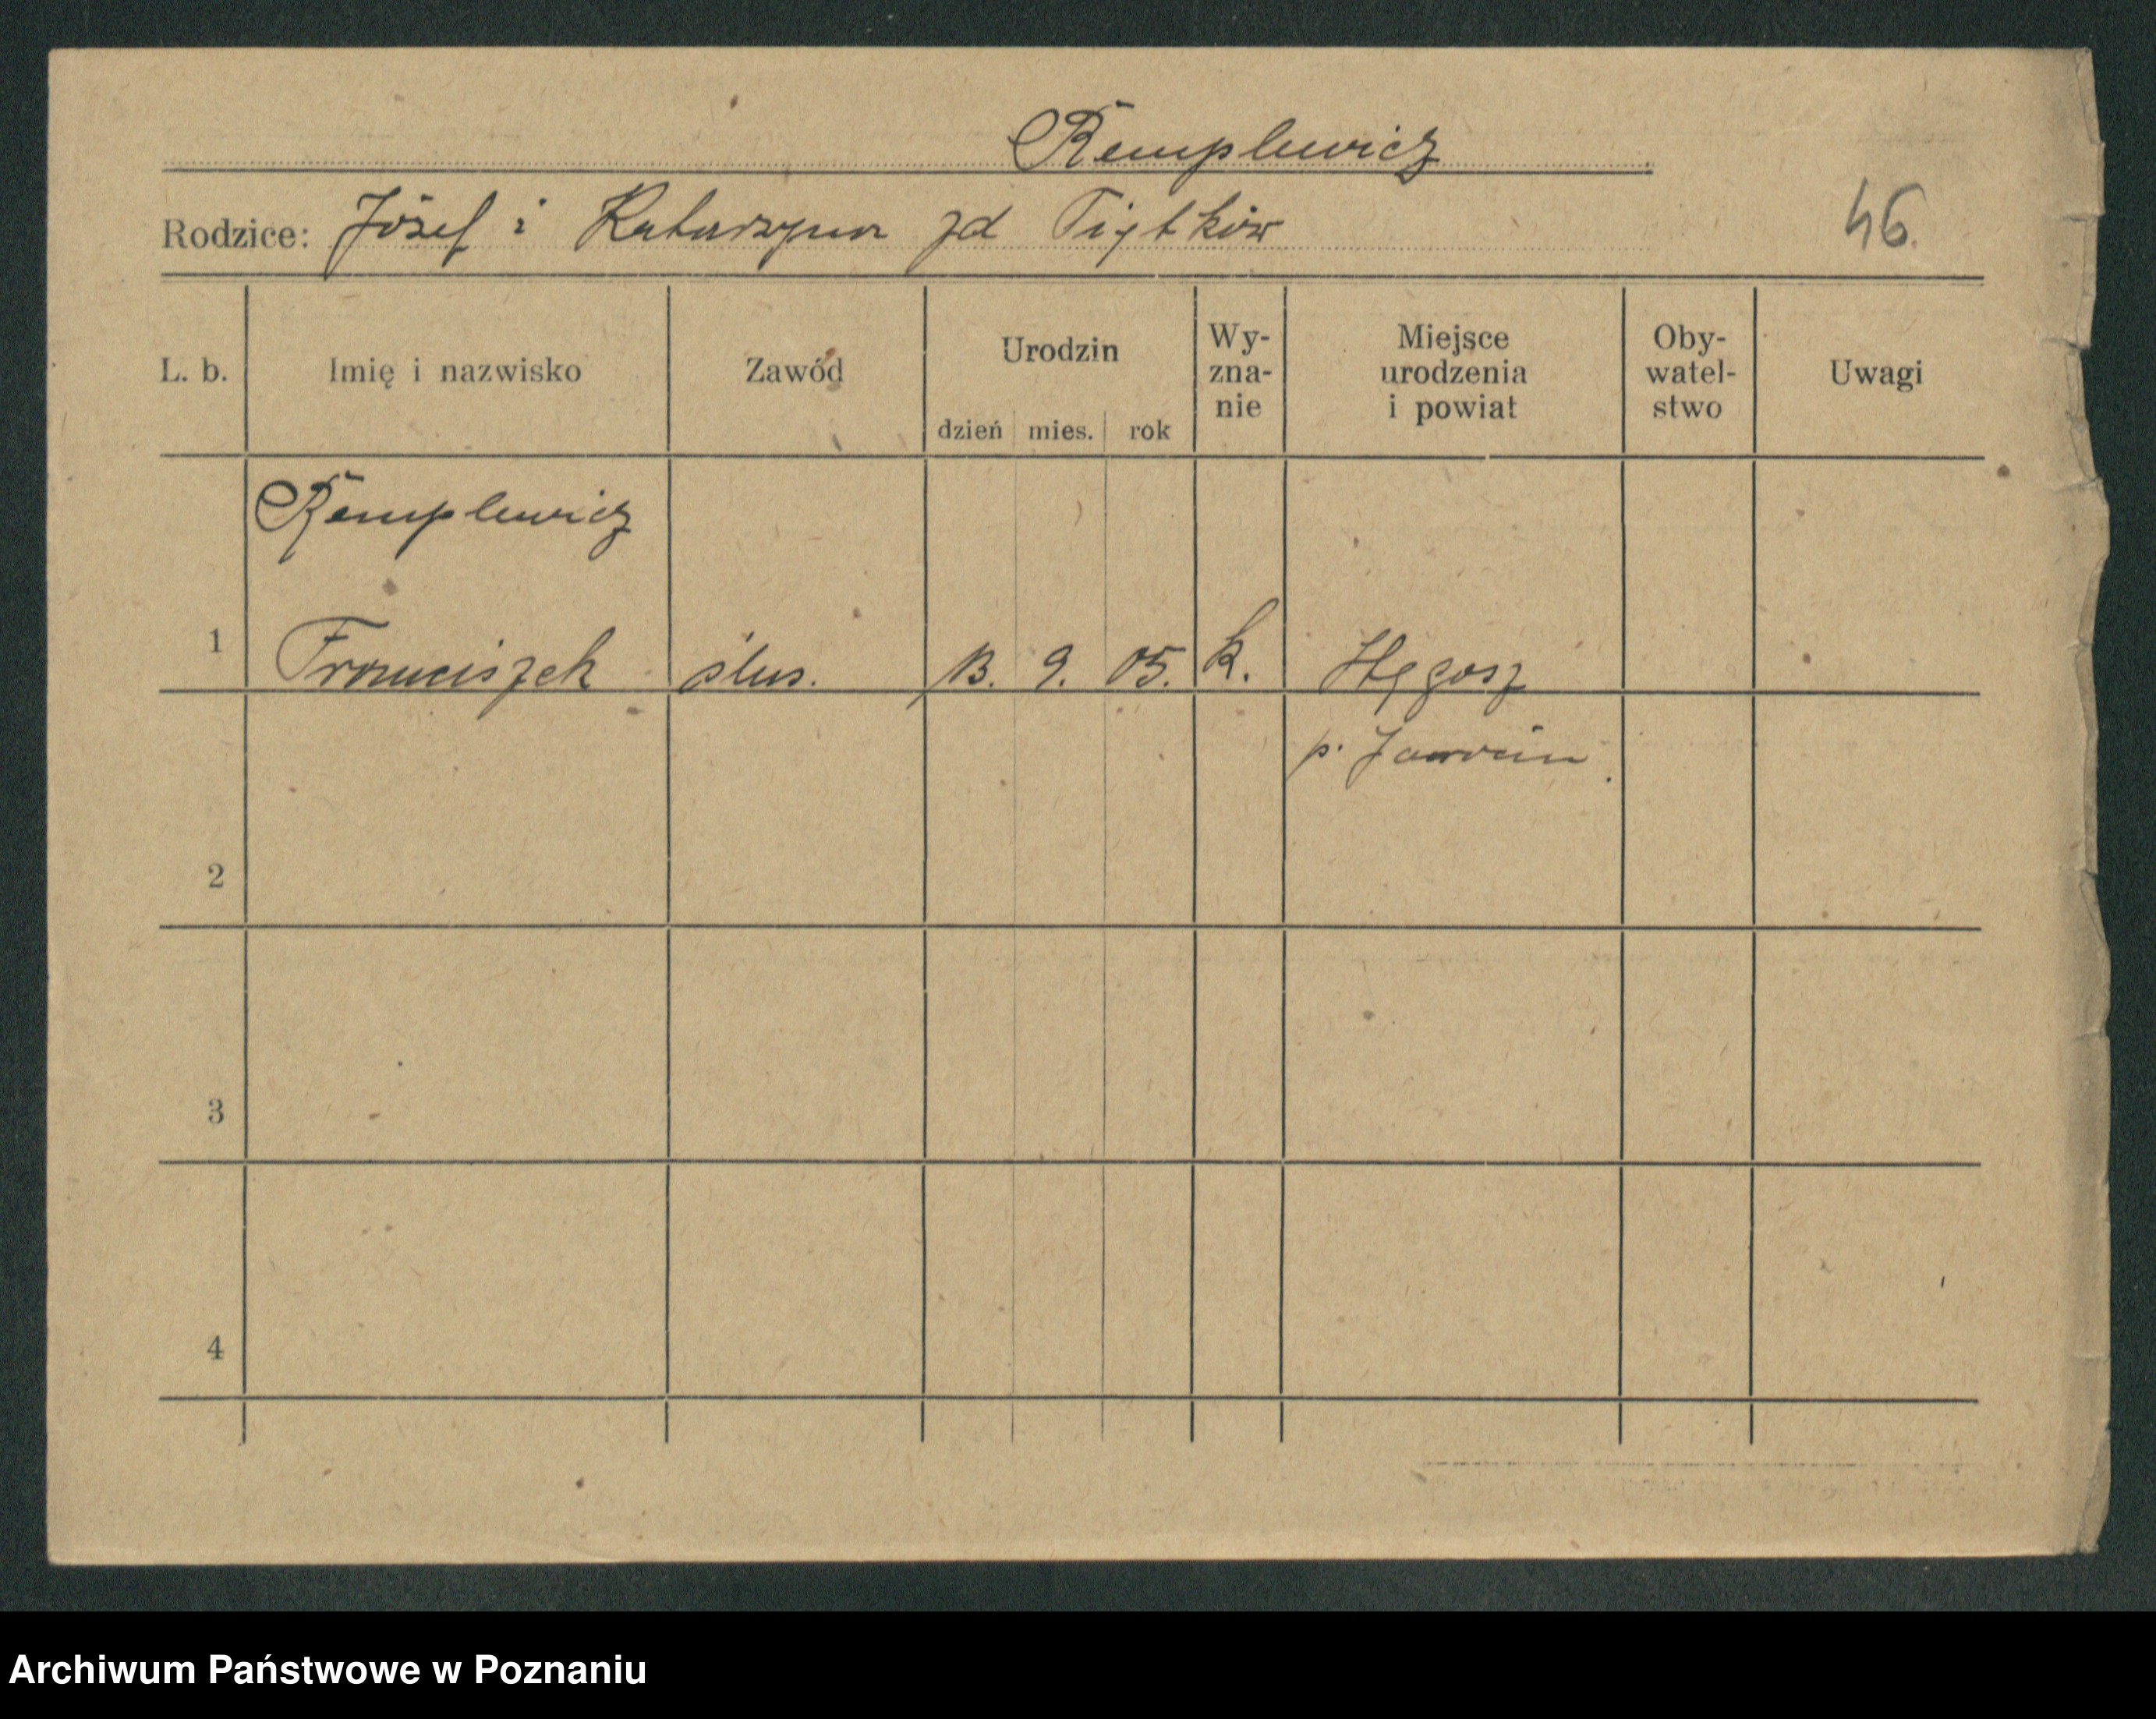 Remplewicz
Rodzice: Józef i Katarzyna zd Piątków
46.
L. b. Imię i nazwisko Zawód Urodzin dzień mies. rok Wy-zna-nie Miejsce urodzenia i powiat Oby-watel-stwo Uwagi
Remplewicz
1 Franciszek ślus. 13. 9. 05. k. Hygosz
p. Jarocin
2
3
4
Archiwum Państwowe w Poznaniu